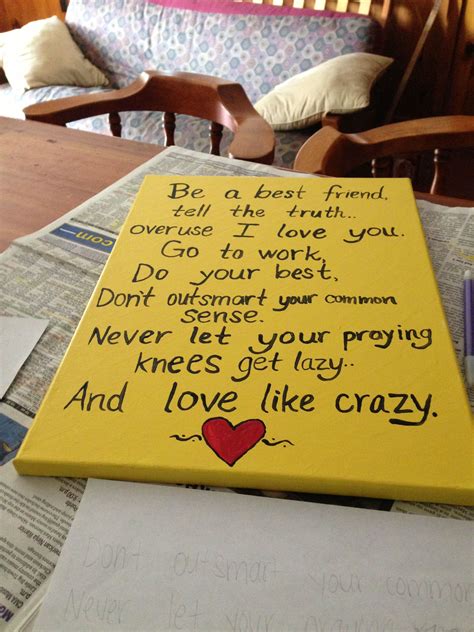 Be a best friend,
tell the truth..
overuse I love you.
Go to work,
Do your best,
Don't outsmart your common
sense.
Never let your praying
knees get lazy..
And love like crazy.
Don't outsmart your common
Never let your praying